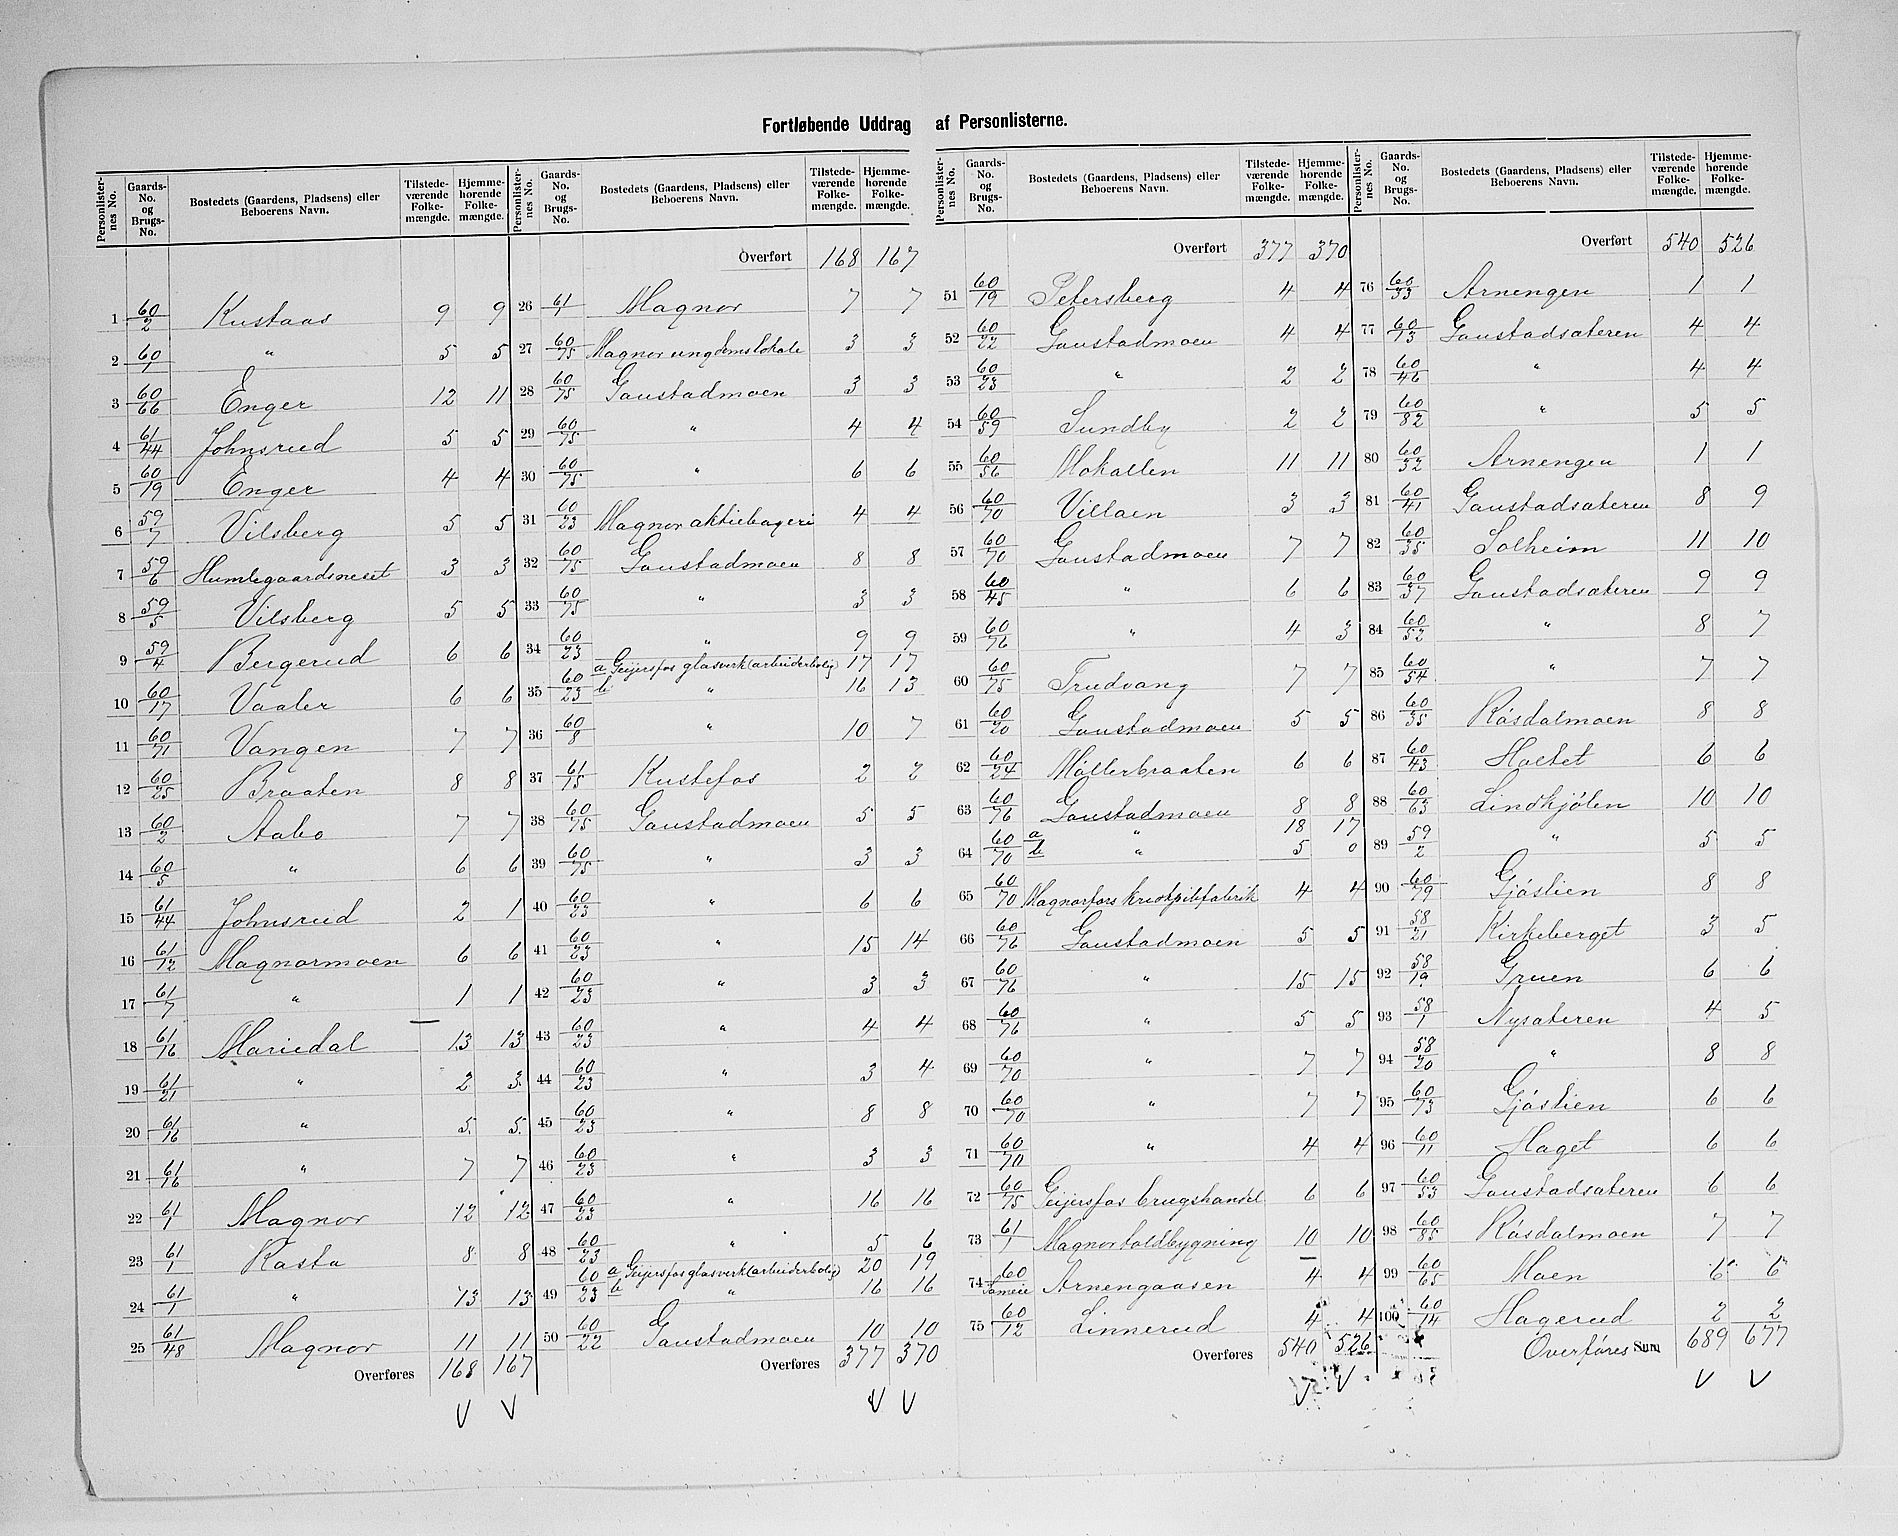 Fortløbende Uddrag af Personlisterne.
Personlisternes No. | Gaards-No. og Brugs-No. | Bostedets (Gaardens, Pladsens) eller Beboerens Navn. | Tilstedeværende Folkemængde. | Hjemmehørende Folkemængde.
1 60/2 Kustaas 9 9
2 60/1 " 5 5
3 60/66 Enger 12 11
4 61/44 Johnsrud 5 5
5 60/19 Enger 4 4
6 59/7 Vilsberg 5 5
7 59/6 Humlegaardsneset 3 3
8 59/5 Vilsberg 5 5
9 59/4 Bergerud 6 6
10 60/17 Vaaler 6 6
11 60/71 Vangen 7 7
12 60/25 Braaten 8 8
13 60/2 Aabo 7 7
14 60/5 " 6 6
15 61/44 Johnsrud 2 1
16 61/12 Magnormoen 6 6
17 61/7 " 1 1
18 61/16 Mariedal 13 13
19 61/21 " 2 3
20 61/16 " 5 5
21 61/16 " 7 7
22 61/1 Magnor 12 12
23 61/1 Rasta 8 8
24 61/1 " 13 13
25 61/48 Magnor 11 11
Overføres 168 167
V V
Personlisternes No. | Gaards-No. og Brugs-No. | Bostedets (Gaardens, Pladsens) eller Beboerens Navn. | Tilstedeværende Folkemængde. | Hjemmehørende Folkemængde.
Overført 168 167
26 61/1 Magnor 7 7
27 60/75 Magnor ungdomslokale 3 3
28 60/75 Gaustadmoen 3 3
29 60/75 " 4 4
30 60/75 " 6 6
31 60/23 Magnor aktiebageri 4 4
32 60/75 Gaustadmoen 8 8
33 60/75 " 3 3
34 60/23 " 9 9
35 60/23 a Geijersfos glasverk (arbeiderbolig) 17 17
b " 16 13
36 60/8 " 10 7
37 61/15 Kustefos 2 2
38 60/75 Gaustadmoen 5 5
39 60/75 " 3 3
40 60/23 " 6 6
41 60/23 " 15 14
42 60/23 " 3 3
43 60/23 " 4 4
44 60/23 " 3 4
45 60/23 " 8 8
46 60/23 " 3 3
47 60/23 " 16 16
48 60/23 " 5 6
49 60/23 a Geijersfos glasverk (arbeiderbolig) 20 19
b " 16 16
50 60/22 Gaustadmoen 10 10
Overføres 377 370
V V
Personlisternes No. | Gaards-No. og Brugs-No. | Bostedets (Gaardens, Pladsens) eller Beboerens Navn. | Tilstedeværende Folkemængde. | Hjemmehørende Folkemængde.
Overført 377 370
51 60/19 Petersberg 4 4
52 60/22 Gaustadmoen 4 4
53 60/23 " 2 2
54 60/59 Sundby 2 2
55 60/56 Mokallen 11 11
56 60/70 Villaen 3 3
57 60/70 Gaustadmoen 7 7
58 60/45 " 6 6
59 60/76 " 4 3
60 60/75 Trudvang 7 7
61 60/20 Gaustadmoen 5 5
62 60/24 Möllerbraaten 6 6
63 60/76 Gaustadmoen 8 8
64 60/70 a " 18 17
b " 5 0
65 60/70 Magnorfors kridtpibfabrik 4 4
66 60/76 Gaustadmoen 5 5
67 60/76 " 15 15
68 60/76 " 5 5
69 60/70 " 7 7
70 60/70 " 7 7
71 60/70 " 4 4
72 60/75 Geijersfos brugshandel 6 6
73 61/1 Magnor toldbygning 10 10
74 60/Sameie Arnengaasen 4 4
75 60/12 Linnerud 4 4
Overføres 540 526
V V
Personlisternes No. | Gaards-No. og Brugs-No. | Bostedets (Gaardens, Pladsens) eller Beboerens Navn. | Tilstedeværende Folkemængde. | Hjemmehørende Folkemængde.
Overført 540 526
76 60/33 Arnengen 1 1
77 60/13 Gaustadsæteren 4 4
78 60/46 " 4 4
79 60/82 " 5 5
80 60/32 Arnengen 1 1
81 60/41 Gaustadsæteren 8 9
82 60/35 Solheim 11 10
83 60/37 Gaustadsæteren 9 9
84 60/52 " 8 7
85 60/54 " 7 7
86 60/35 Rösdalmoen 8 8
87 60/43 Holtet 6 6
88 60/63 Lindkjölen 10 10
89 59/2 " 5 5
90 60/79 Gjöslien 8 8
91 58/21 Kirkeberget 3 5
92 58/19 Gruen 6 6
93 58/1 Nysæteren 4 5
94 58/20 " 8 8
95 60/73 Gjöslien 6 6
96 60/11 Haget 6 6
97 60/53 Gaustadsæteren 6 6
98 60/85 Rösdalmoen 7 7
99 60/65 Moen 6 6
100 60/14 Hagerud 2 2
Overføres Sum 689 677
V V